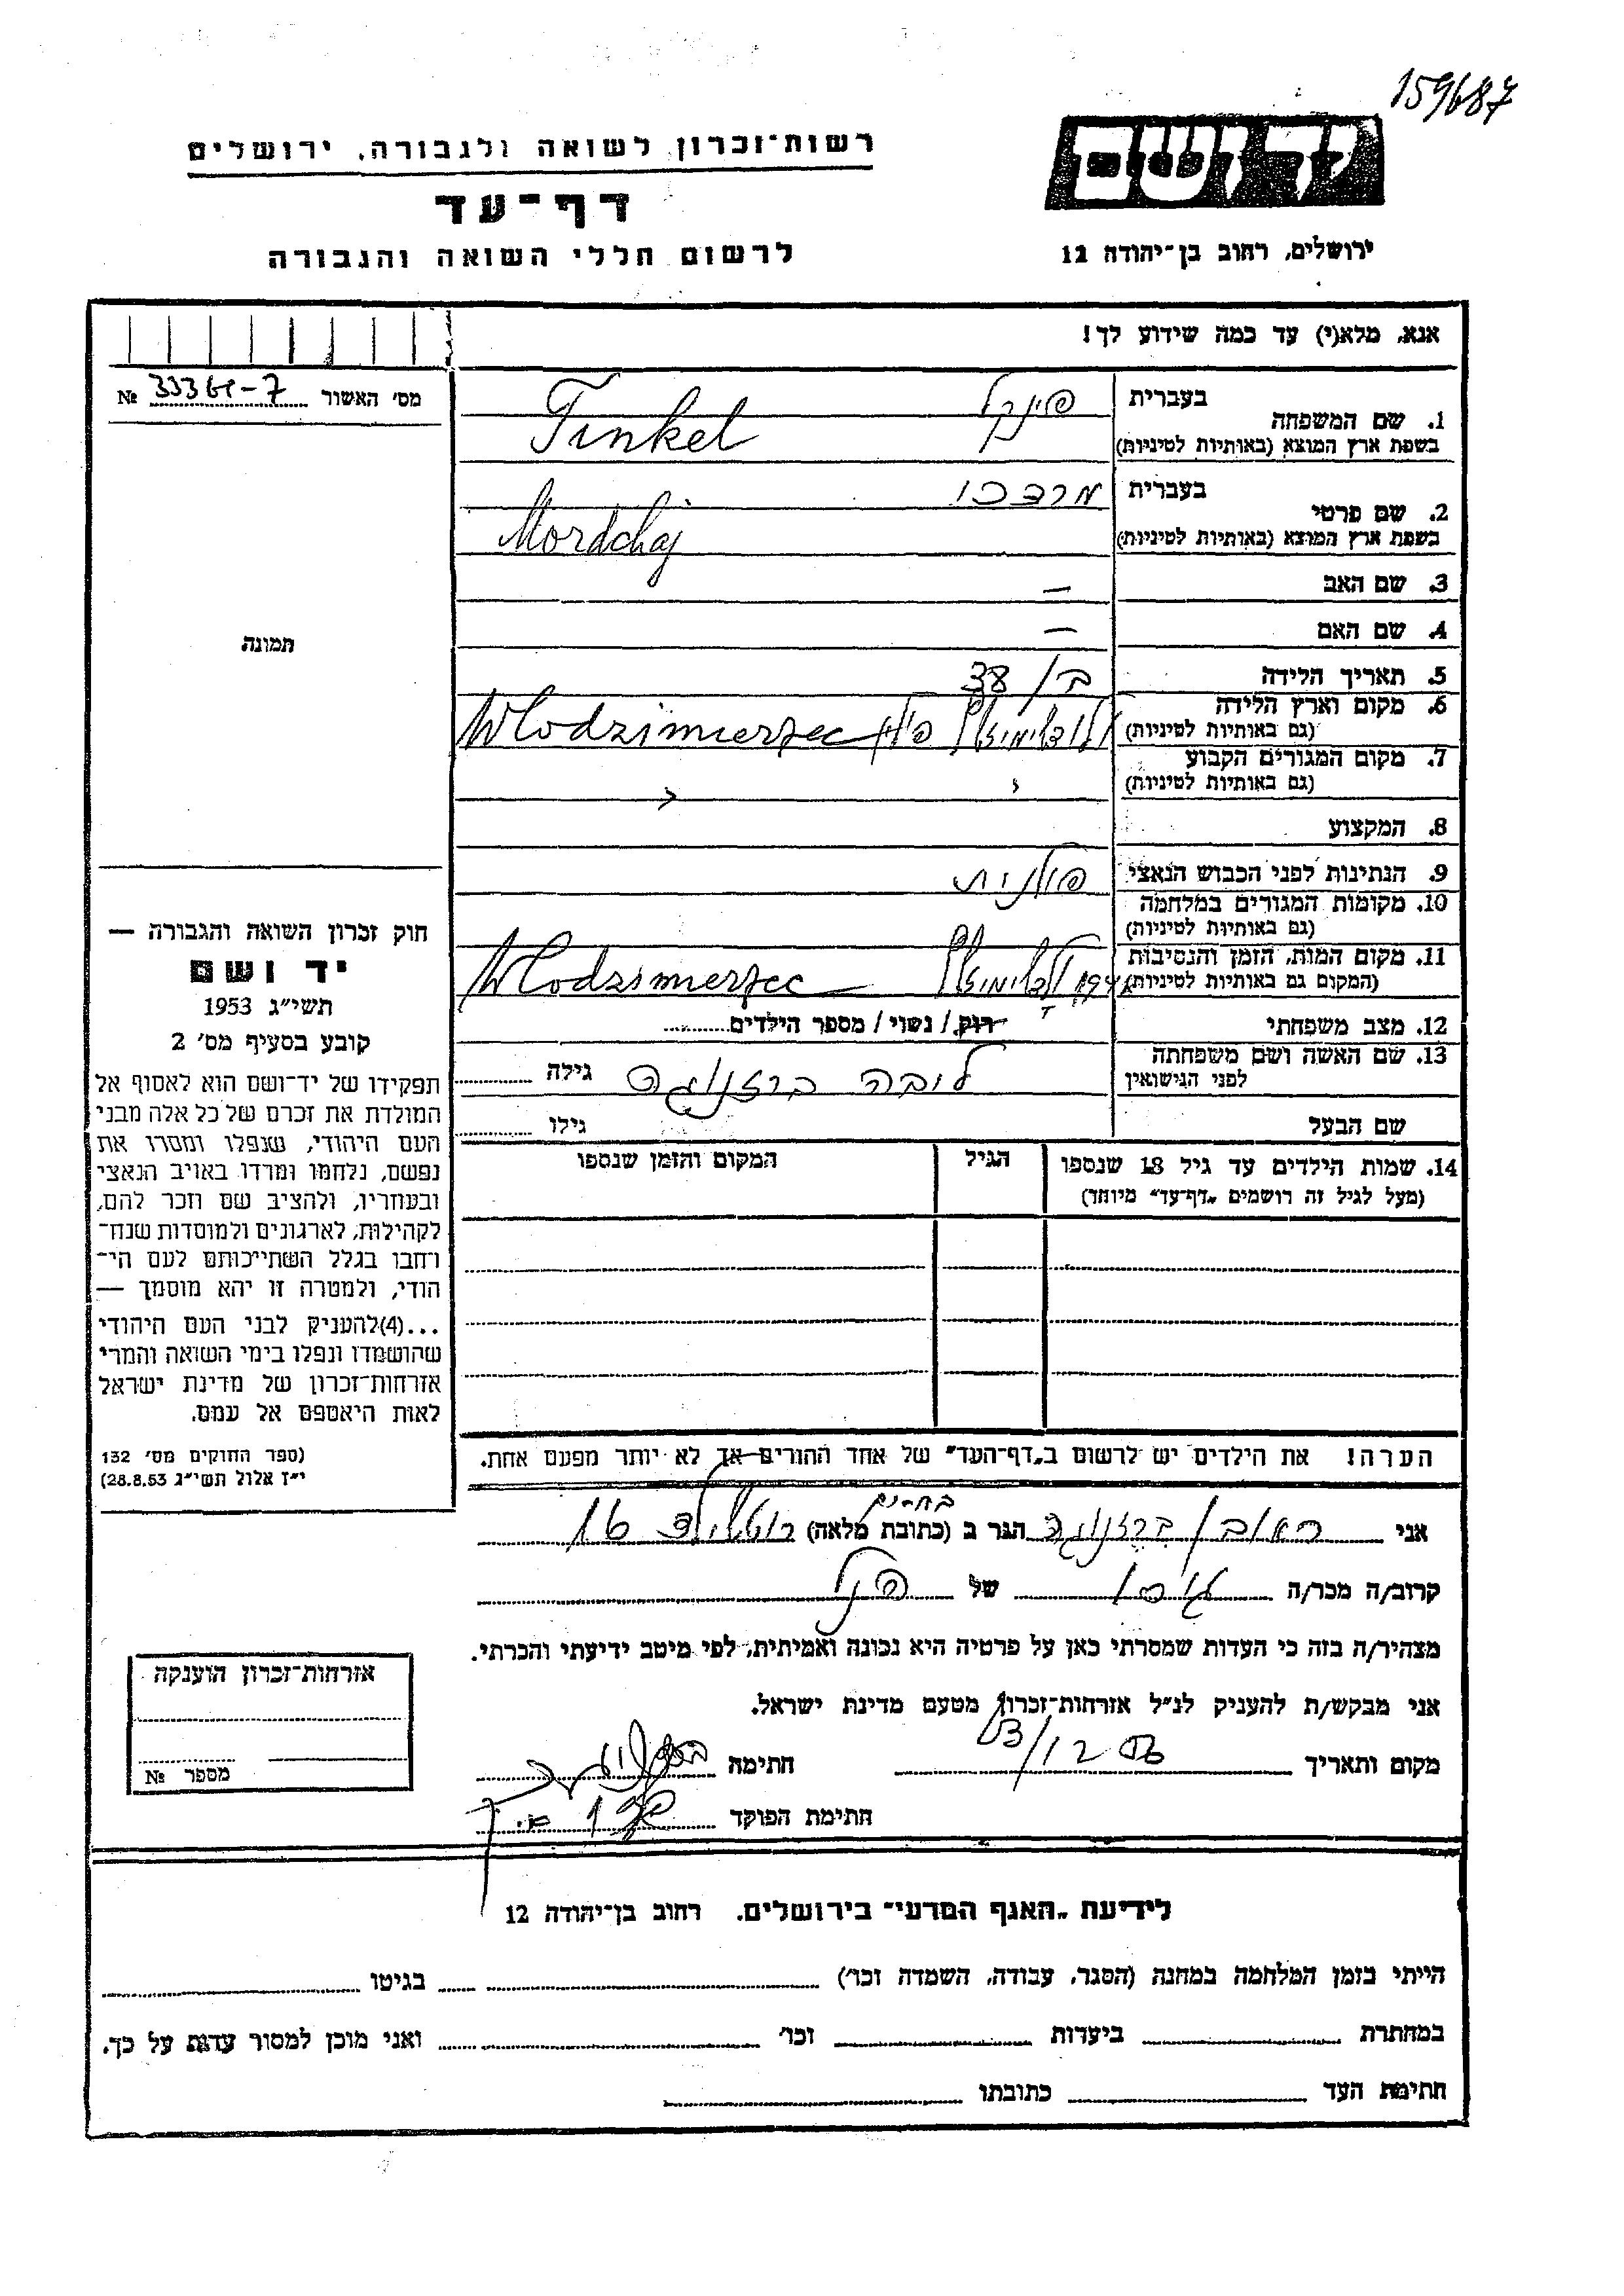 159687
רשות־זכרון לשואה ולגבורה, ירושלים
דף־עד
לרשום חללי השואה והגבורה
יד ושם
ירושלים, רחוב בן־יהודה 12
אנא, מלא(י) עד כמה שידוע לך!
מס׳ האשור № 333
1. שם המשפחה
בעברית פינקל
בשפת ארץ המוצא (באותיות לטיניות) Finkel
2. שם פרטי
בעברית מרדכי
בשפת ארץ המוצא (באותיות לטיניות) Mordchaj
3. שם האב —
4. שם האם —
5. תאריך הלידה בן 38
6. מקום וארץ הלידה
(גם באותיות לטיניות) פולין Wlodzimierzec
7. מקום המגורים הקבוע
(גם באותיות לטיניות)
8. המקצוע
9. הנתינות לפני הכבוש הנאצי פולנית
10. מקומות המגורים במלחמה
(גם באותיות לטיניות)
11. מקום המות, הזמן והנסיבות
(המקום גם באותיות לטיניות) Wlodzimierzec
12. מצב משפחתי רוק/ נשוי/ מספר הילדים
13. שם האשה ושם משפחתה
לפני הנישואין ליובה ברזניגה גילה
שם הבעל גילו
14. שמות הילדים עד גיל 18 שנספו
(מעל לגיל זה רושמים „דף־עד״ מיוחד)
הגיל
המקום והזמן שנספו
תמונה
חוק זכרון השואה והגבורה —
יד ושם
תשי״ג 1953
קובע בסעיף מס׳ 2
תפקידו של יד־ושם הוא לאסוף אל
המולדת את זכרם של כל אלה מבני
העם היהודי, שנפלו ומסרו את
נפשם, נלחמו ומרדו באויב הנאצי
ובעוזריו, ולהציב שם וזכר להם,
לקהילות, לארגונים ולמוסדות שנח־
רחבו בגלל השתייכותם לעם הי־
הודי, ולמטרה זו יהא מוסמך —
...(4)להעניק לבני העם היהודי
שהושמדו ונפלו בימי השואה והמרי
אזרחות־זכרון של מדינת ישראל
לאות היאספם אל עמם.
(ספר החוקים מס׳ 132
י״ז אלול תשי״ג 28.8.53)
הערה! את הילדים יש לרשום ב„דף־העד״ של אחד ההורים אך לא יותר מפעם אחת.
אני ראובן ברזניגה הגר ב (כתובת מלאה) רוטשילד 16
קרוב/ה מכר/ה גיסו של הנ״ל
מצהיר/ה בזה כי העדות שמסרתי כאן על פרטיה היא נכונה ואמיתית, לפי מיטב ידיעתי והכרתי.
אני מבקש/ת להעניק לנ״ל אזרחות־זכרון מטעם מדינת ישראל.
מקום ותאריך חתימה
חתימת הפוקד
אזרחות־זכרון הוענקה
מספר №
לידיעת „האגף המדעי״ בירושלים. רחוב בן־יהודה 12
הייתי בזמן המלחמה במחנה (הסגר, עבודה, השמדה וכו׳) בגיטו
במחתרת ביערות וכו׳ ואני מוכן למסור עדות על כך.
חתימת העד כתובתו